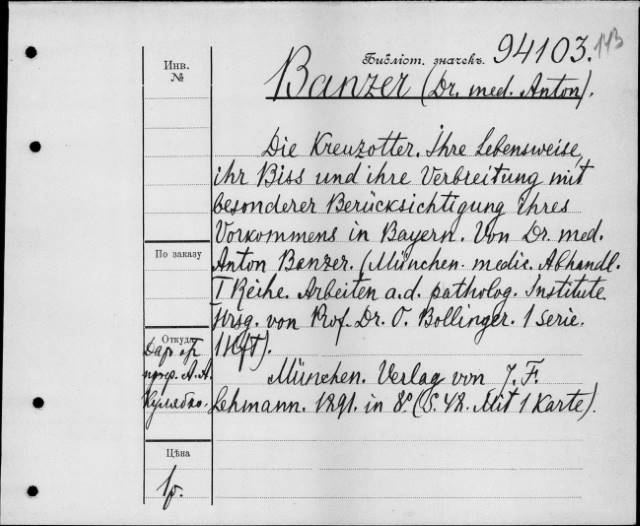 Библіот. значекъ. 94103.
Инв.
№
Banzer (Dr. med. Anton).
Die Kreuzotter. Ihre Lebensweise,
ihr Biss und ihre Verbreitung mit
besonderer Berücksichtigung ihres
Vorkommens in Bayern. Von Dr. med.
По заказу
Anton Banzer. (München. medic. Abhandl.
I Reihe. Arbeiten a. d. patholog. Institute.
Hrsg. von Prof. Dr. O. Bollinger. 1 Serie.
1 Hft).
Откуда
Даръ отъ
проф. А. А.
Кулябко.
München. Verlag von J. F.
Lehmann. 1891. in 8°. (S. 48. Mit 1 Karte).
Цѣна
1р.